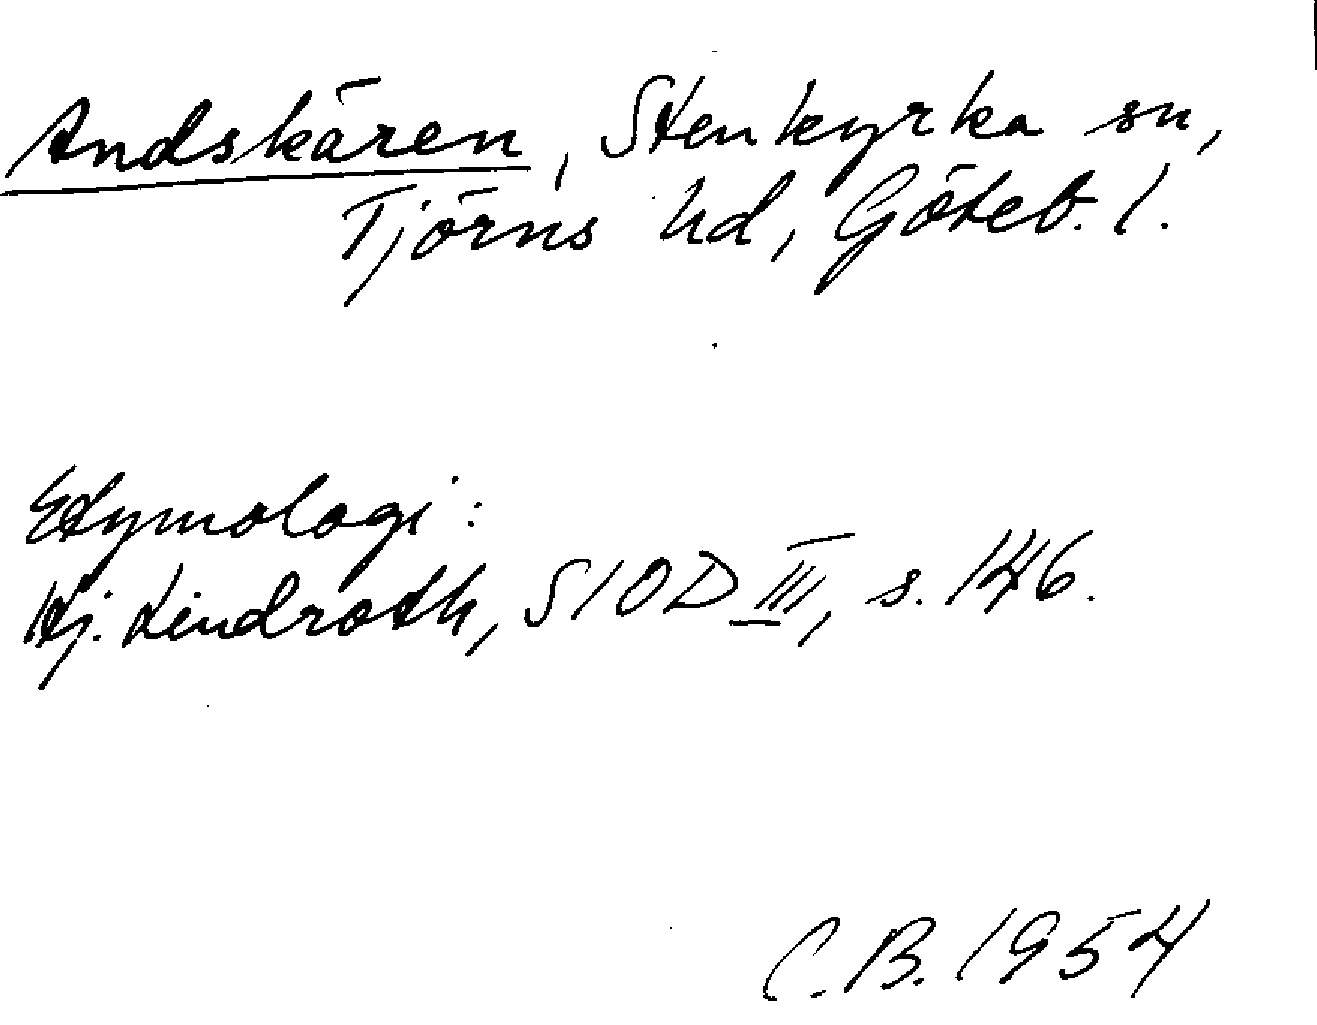 Andskären, Stenkyrka sn,
Tjörns hd, Göteb. l.
Etymologi:
Hj. Lindroth, SIOD III, s. 146.
C.B. 1954